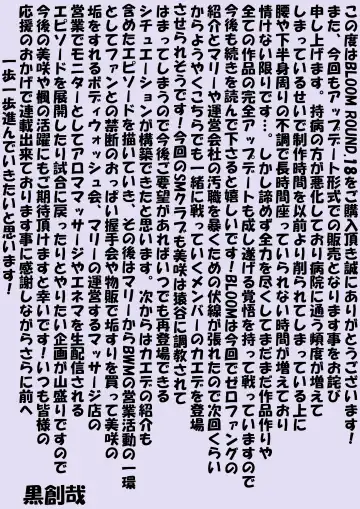 この度はBLOOM ROUND.18をご購入頂き誠にありがとうございます！
また、今回もアップデート形式での販売となります事をお詫び
申し上げます。持病の方が悪化しており病院に通う頻度が増えて
しまっているせいで制作時間を以前より削られてしまっている上に
腰や下半身周りの不調で長時間座っていられない時間が増えており
情けない限りです…。しかし諦めず全力を尽くしてまだまだ作品作りや
全ての作品の完全アップデートも成し遂げる覚悟を持って戦っていますので
今後も続きを読んで下さると嬉しいです！BLOOMは今回でゼロファングの
紹介とマリーや運営会社の汚職を暴くための伏線が張れたので次回くらい
からようやくこちらでも一緒に戦っていくメンバーのカエデを登場
させられそうです！今回のSMクラブも美咲は猿谷に調教されて
はまってしまうので今後ご要望があればいつでも再登場できる
シチュエーションが構築できたと思います。次からはカエデの紹介も
含めたエピソードを描いていき、その後はマリーからBWMの営業活動の一環
としてファンとの禁断のおっぱい握手会や物販で垢すりを買って美咲の
垢をすれるボディウォッシュ会、マリーの運営するマッサージ店の
営業でモニターとしてアロママッサージやエネマを生配信される
エピソードを展開したり試合に戻ったりとやりたい企画が山盛りですので
今後の美咲や楓の活躍にもご期待頂けますと幸いです！いつも皆様の
応援のおかげで連載出来ております事に感謝しながらさらに前へ
一歩一歩進んでいきたいと思います！
黒創哉